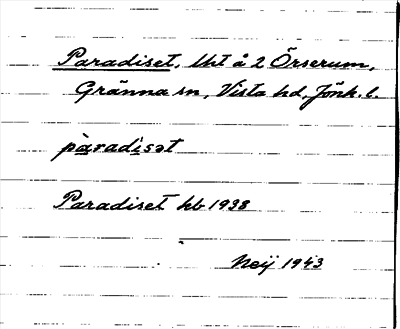 Paradiset, lht å 2 Örserum,
Gränna sn, Vista hd, Jönk. l.
pàradisət
Paradiset hb 1938
Neij 1943